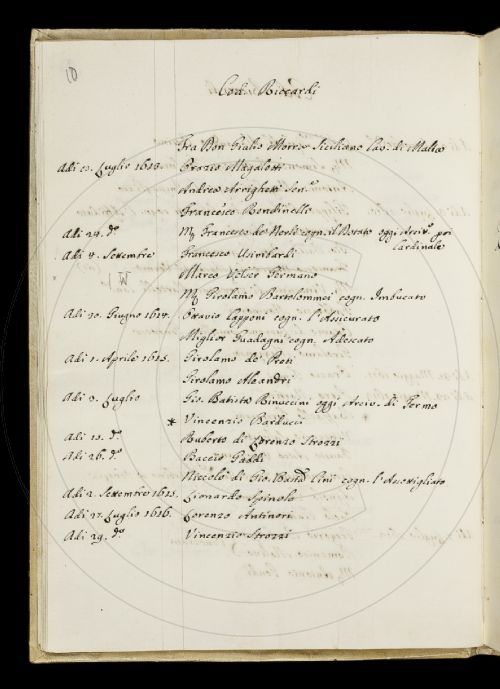 10
Cod. Riccardi
Fra Don Giulio Morris Siciliano Cav. di Malta
Adi 10. Luglio 1613. Orazio Magalotti
Andrea Arrighetti Sen.re
Francesco Bondinelli
Adi 24. do Mr Francesco de' Nerli cogn. il Borato oggi Arciv. poi
Cardinale
Adi 4. Settembre Francesco Usimbardi
Marco Velser Germano
Mr Girolamo Bartolommei cogn. Imbucato
Adi 20. Giugno 1614. Ottavio Capponi cogn. l'Assicurato
Miglior Guadagni cogn. Adescato
Adi 1. Aprile 1615. Girolamo de'
Girolamo Aleandri
Adi 3. Luglio Gio. Batista Rinuccini oggi Arciv. di Fermo
* Vincenzio Barducci
Adi 13. do Ruberto di Lorenzo Strozzi
Adi 26. do Baccio Gaddi
Niccolò di Gio. Batta Cini cogn. l'Assottigliato
Adi 2. Settembre 1615. Lionardo Spinola
Adi 27. Luglio 1616. Lorenzo Antinori
Adi 29. do Vincenzio Strozzi